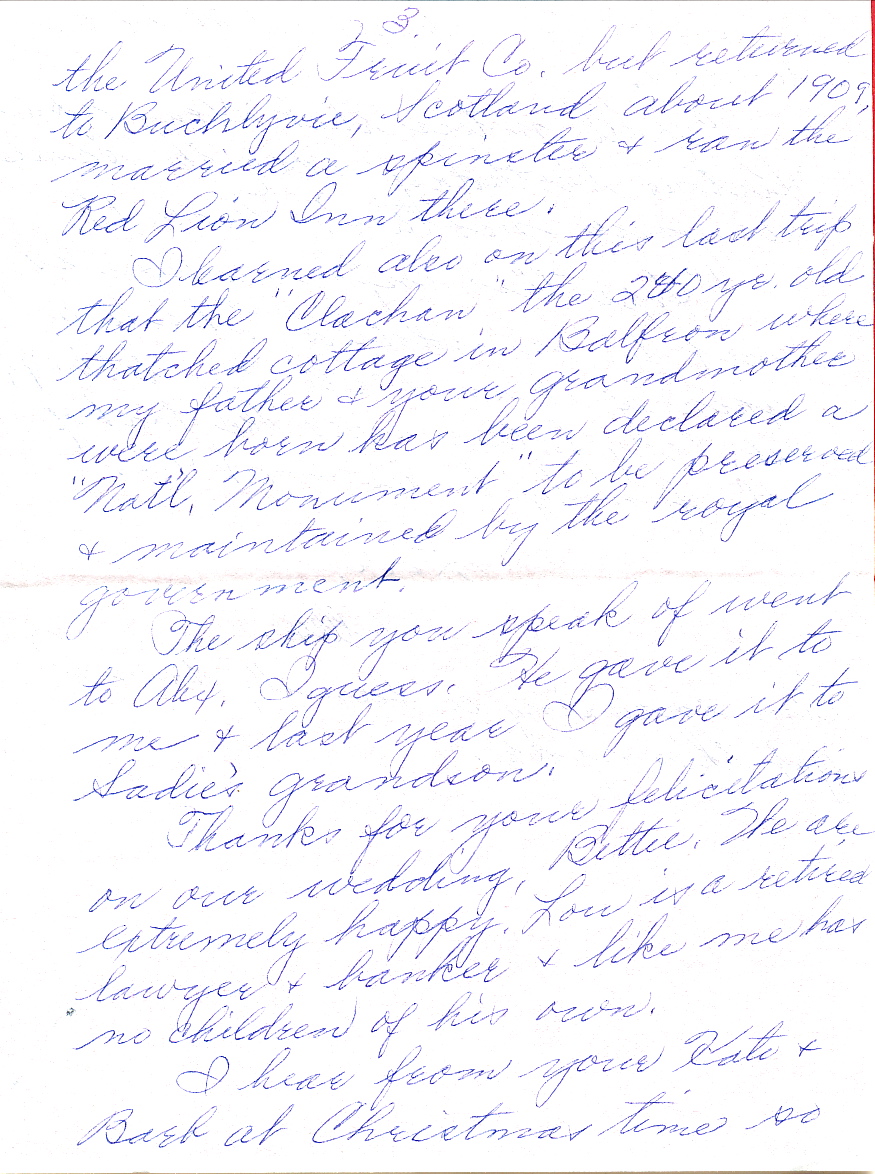 3.
the United Fruit Co. but returned
to Buchlyvie, Scotland about 1909,
married a spinster & ran the
Red Lion Inn there.
I learned also on this last trip
that the "Clachan" the 240 yr. old
thatched cottage in Balfron where
my father & your grandmother
were born has been declared a
"Nat'l. Monument" to be preserved
& maintained by the royal
government.
The ship you speak of went
to Alex, I guess. He gave it to
me & last year I gave it to
Sadie's grandson.
Thanks for your felicitations
on our wedding, Bettie. We are
extremely happy. Lou is a retired
lawyer & banker & like me has
no children of his own.
I hear from your Kate &
Barb at Christmas time so